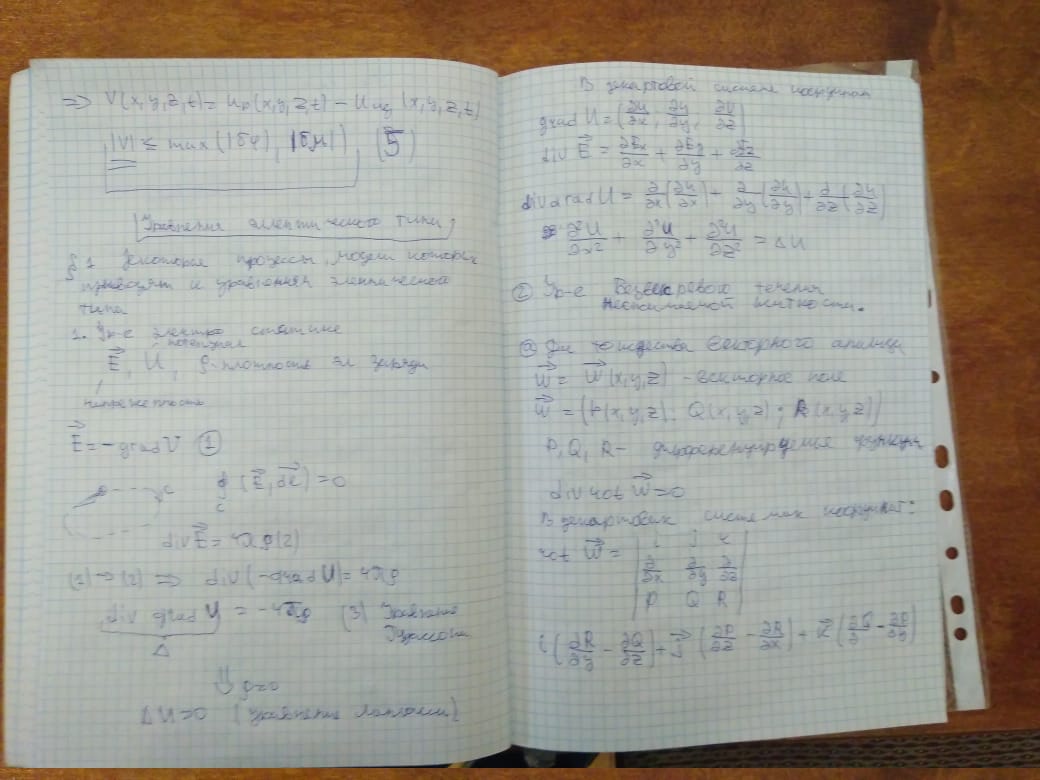 => V(x,y,z,t) = Uр(x,y,z,t) - U (x,y,z,t)
|V| ≤ max(|δφ|, |δμ|) (5)
Уравнения эллептического типа
§ 1 Некоторые процессы, модели которых
приводят к уравнениям эллептического
типа
1. Ур-е электро статике
потенциал
E⃗, U, ρ-плотность эл заряда
E⃗ = -grad U (1)
∮ (E⃗, dl⃗) = 0
c
div E⃗ = 4πρ (2)
(1)->(2) => div(-grad U) = 4πρ
div grad U = -4πρ (3) Уравнение
Пуассона
Δ
⇓ ρ=0
ΔU=0 (уравнение Лапласа)
В декартовой системе координат
grad U = (∂U/∂x, ∂U/∂y, ∂U/∂z)
div E⃗ = ∂Ex/∂x + ∂Ey/∂y + ∂Ez/∂z
div grad U = ∂/∂x(∂U/∂x) + ∂/∂y(∂U/∂y) + ∂/∂z(∂U/∂z)
∂²U/∂x² + ∂²U/∂y² + ∂²U/∂z² = ΔU
② Ур-е Безвихревого течения
несжимаемой жидкости.
ⓐ Два тождества векторного анализа
W⃗ = W⃗(x,y,z) - векторное поле
W⃗ = (P(x,y,z); Q(x,y,z); R(x,y,z))
P, Q, R - функции
div rot W⃗ = 0
В декартовых системах координат:
rot W⃗ = | i j k |
| ∂/∂x ∂/∂y ∂/∂z |
| P Q R |
i(∂R/∂y - ∂Q/∂z) + j⃗(∂P/∂z - ∂R/∂x) + k⃗(∂Q/∂ - ∂P/∂y)